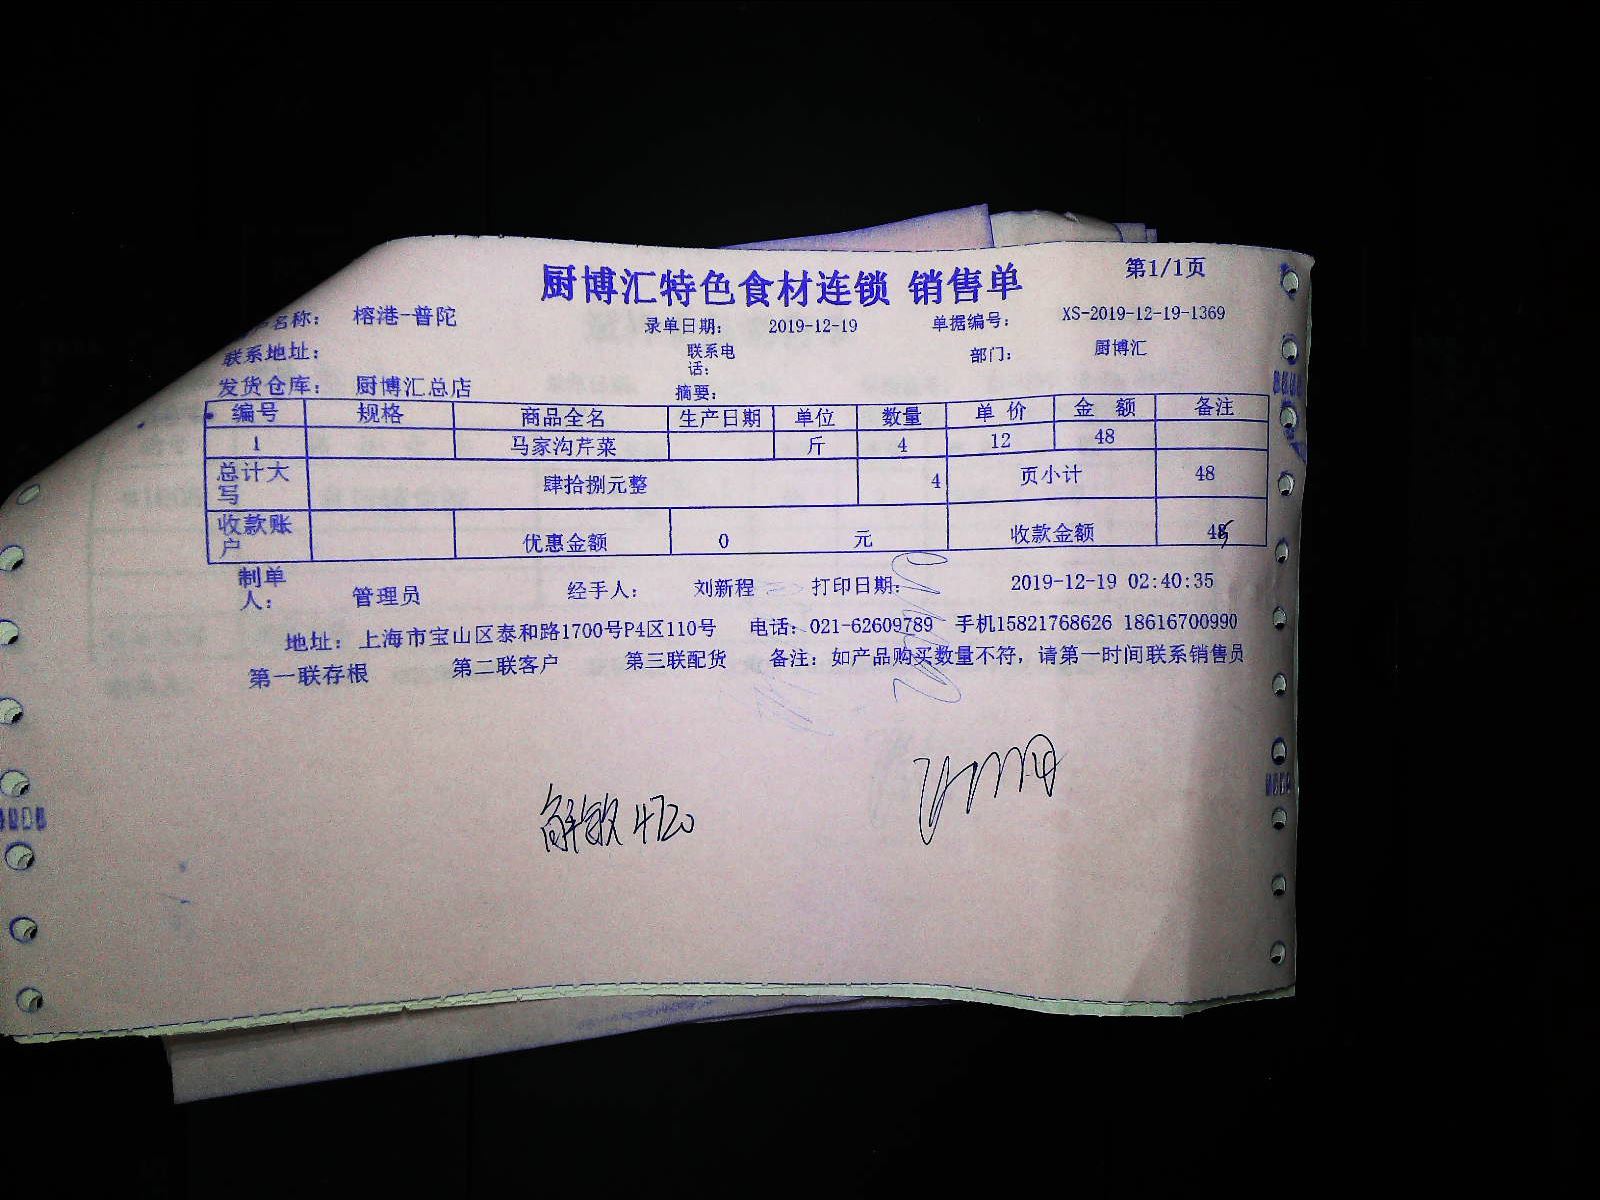 厨博汇特色食材连锁 销售单
第1/1页
名称: 榕港-普陀 录单日期: 2019-12-19 单据编号: XS-2019-12-19-1369
联系地址: 联系电话: 部门: 厨博汇
发货仓库: 厨博汇总店 摘要:
编号 规格 商品全名 生产日期 单位 数量 单价 金额 备注
1 马家沟芹菜 斤 4 12 48
总计大写 肆拾捌元整 4 页小计 48
收款账户 优惠金额 0 元 收款金额 48
制单人: 管理员 经手人: 刘新程 打印日期: 2019-12-19 02:40:35
地址: 上海市宝山区泰和路1700号P4区110号 电话: 021-62609789 手机15821768626 18616700990
第一联存根 第二联客户 第三联配货 备注: 如产品购买数量不符, 请第一时间联系销售员